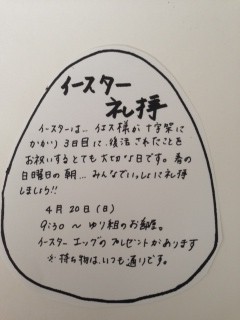 イースター
礼拝
イースターは…イエス様が十字架に
かかり3日目に、復活されたことを
お祝いするとても大切な日です。春の
日曜日の朝…みんなでいっしょに礼拝
しましょう!!
4月20日(日)
9:30〜ゆり組のお部屋。
イースターエッグのプレゼントがあります
※持ち物は、いつも通りです。